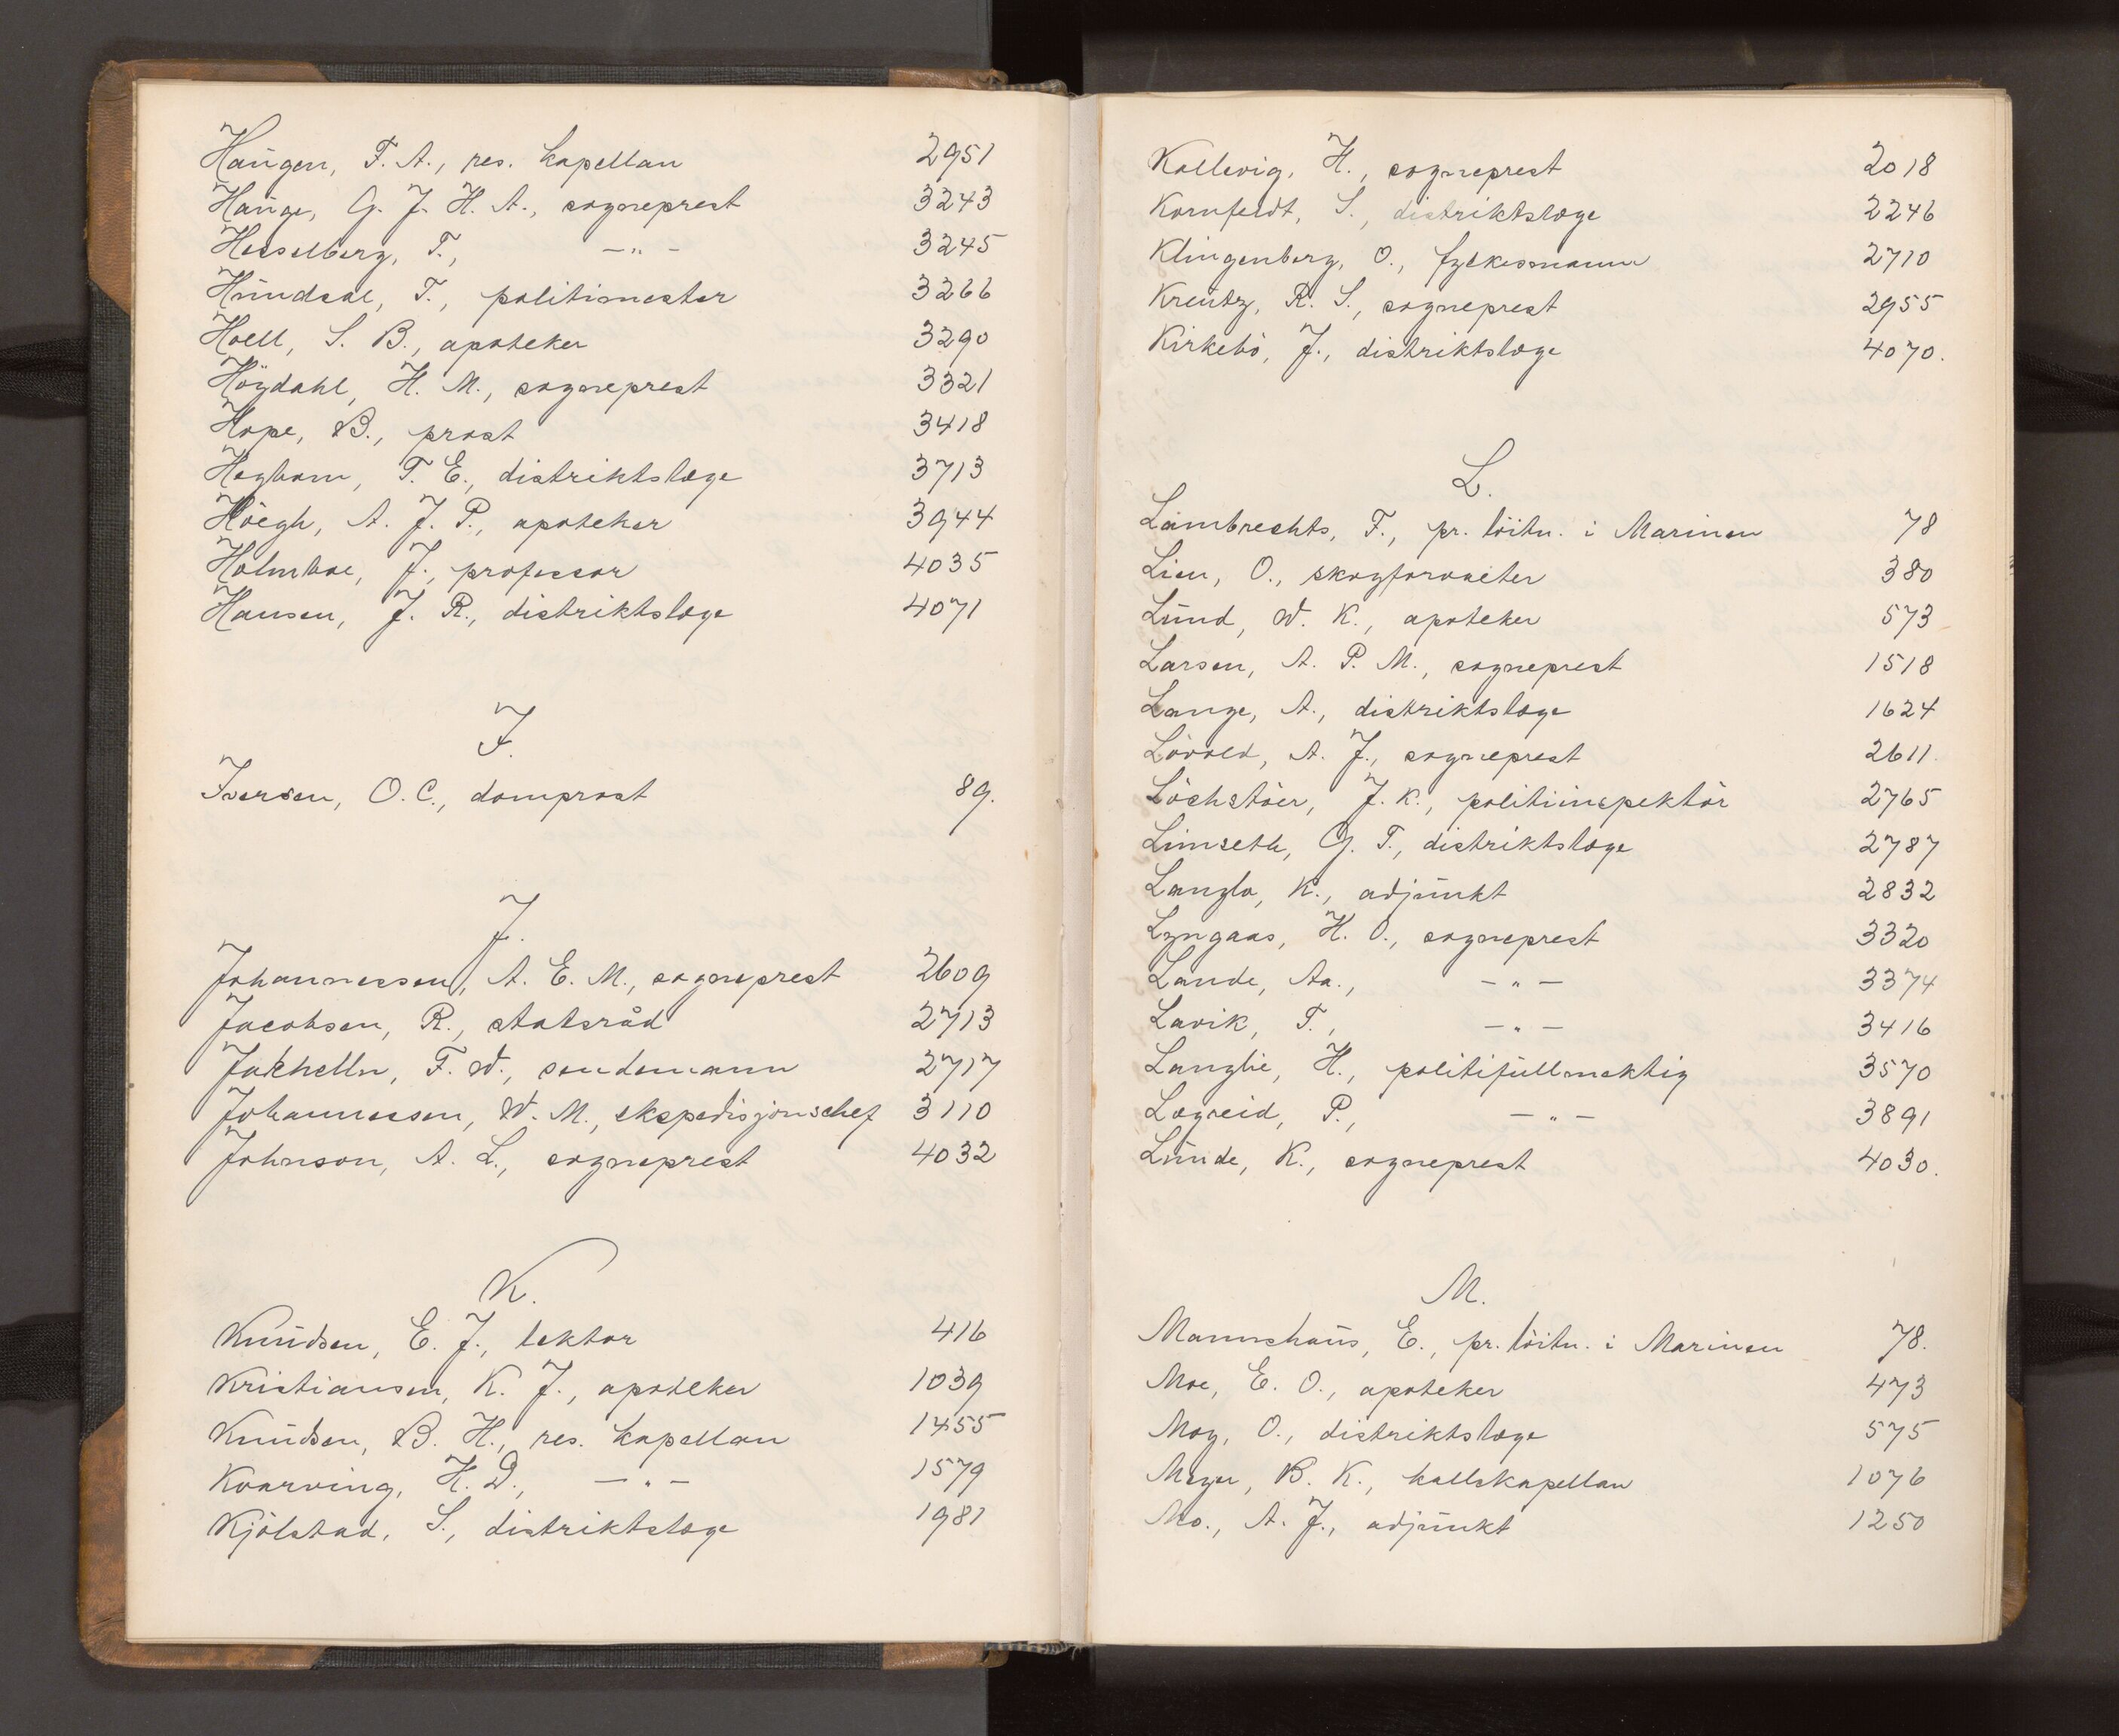 Haugen, F. A., res. kapellan 2951
Hauge, G. J. H. A., sogneprest 3243
Hesselberg, T., —„— 3245
Hundsal, T., politimester 3266
Holl, S. B., apoteker 3290
Høydahl, H. M., sogneprest 3321
Hope, B., prost 3418
Hegbom, T. E., distriktslæge 3713
Höegh, A. J. P., apoteker 3944
Holmboe, J., professor 4035
Hansen, J. R., distriktslæge 4071
I.
Iversen, O. C., domprost 89.
J.
Johannessen, A. E. M., sogneprest 2609
Jacobsen, R., statsråd 2713
Jakhelln, F. W., sendemann 2717
Johannessen, W. M., ekspedisjonschef 3110
Johnson, A. L., sogneprest 4032
K.
Knudsen, E. J., lektor 416
Kristiansen, K. J., apoteker 1039
Knudsen, B. H., res. kapellan 1455
Kvarving, H. D., —„— 1579
Kjölstad, S., distriktslæge 1981
Kollevig, H., sogneprest 2018
Kornfeldt, S., distriktslæge 2246
Klingenberg, O., fylkesmann 2710
Kreutz, R. S., sogneprest 2955
Kirkebö, J., distriktslæge 4070.
L.
Lambrechts, F., pr. löitn. i Marinen 78
Lien, O., skogforvalter 380
Lund, W. K., apoteker 573
Larsen, A. P. M., sogneprest 1518
Lange, A., distriktslæge 1624
Lövold, A. J., sogneprest 2611.
Löchstöer, J. K., politiinspektör 2765
Limseth, G. T., distriktslæge 2787
Langlo, K., adjunkt 2832
Lyngaas, H. O., sogneprest 3320
Lande, Aa., —„— 3374
Lavik, T., —„— 3416
Langlie, H., politifullmektig 3570
Lægreid, P., —„— 3891
Lunde, K., sogneprest 4030.
M.
Mannshaus, E., pr. löitn. i Marinen 78.
Moe, E. O., apoteker 473
Moy, O., distriktslæge 575
Meyer, B. K., kallskapellan 1076
Mo., A. J., adjunkt 1250